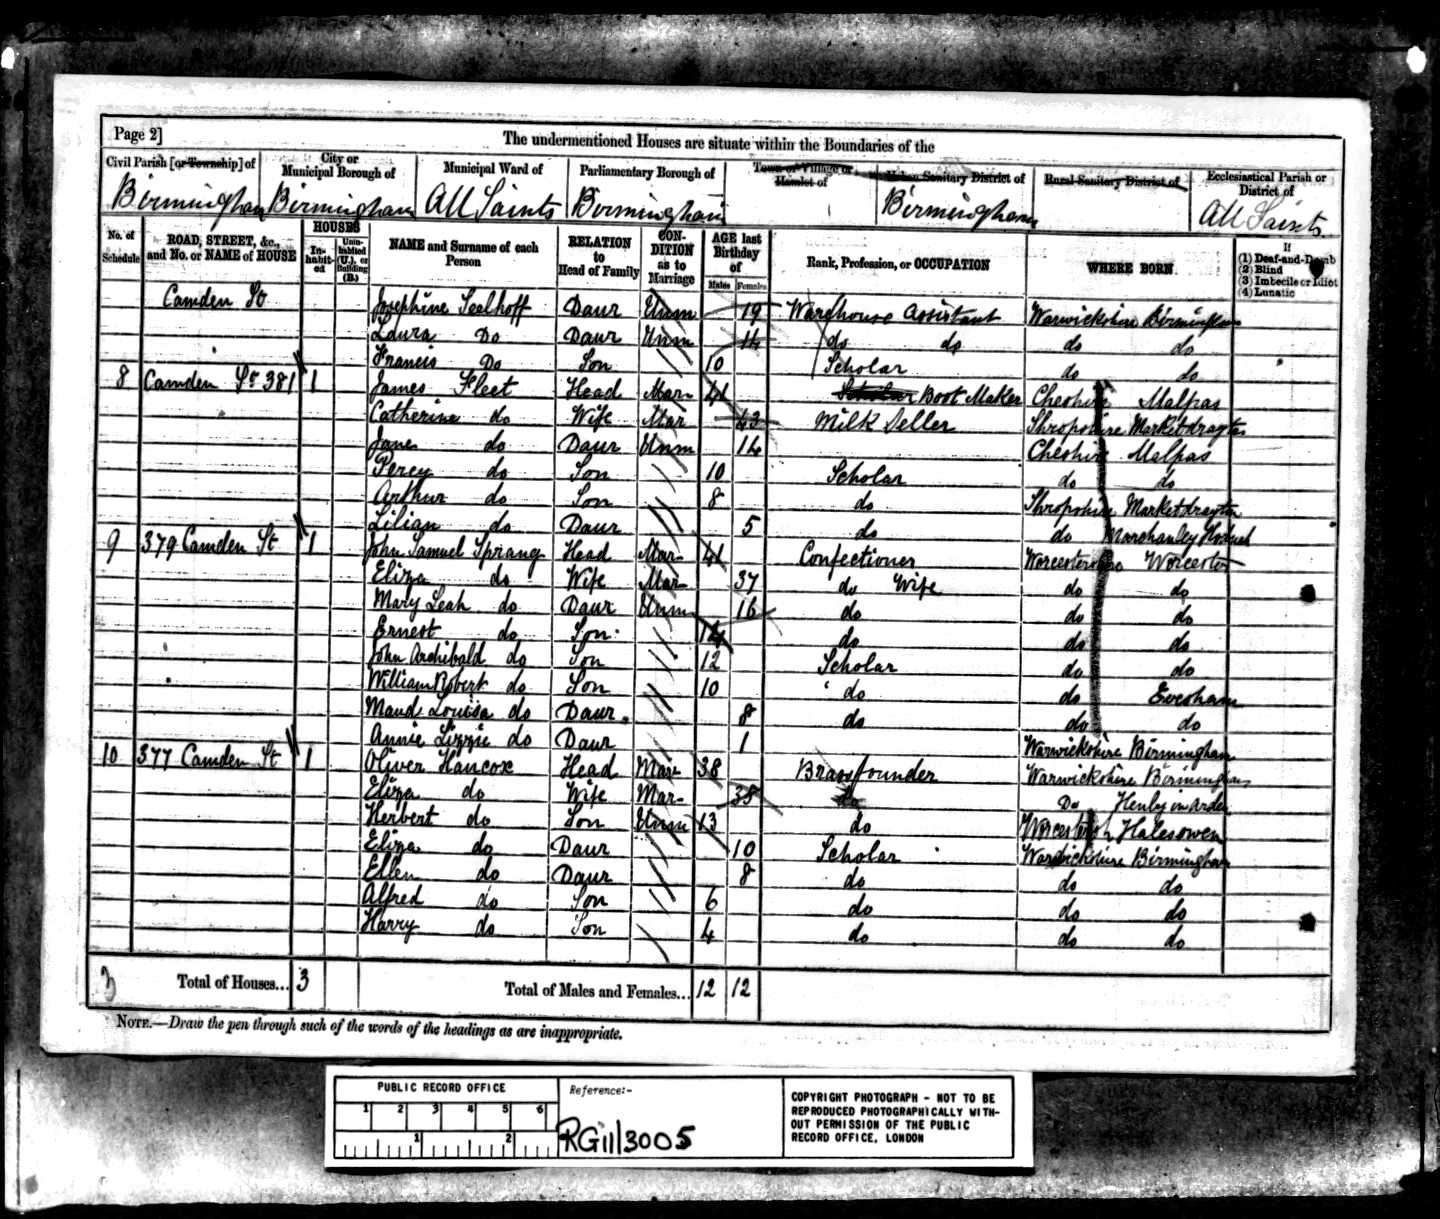 Page 2]
The undermentioned Houses are situate within the Boundaries of the
Civil Parish [or Township] of City or Municipal Borough of Municipal Ward of Parliamentary Borough of Town or Village or Hamlet of Urban Sanitary District of Rural Sanitary District of Ecclesiastical Parish or District of
Birmingham Birmingham All Saints Birmingham Birmingham All Saints
No. of Schedule ROAD, STREET, &c., and No. or NAME of HOUSE HOUSES Inhabited Uninhabited (U.), or Building (B.) NAME and Surname of each Person RELATION to Head of Family CONDITION as to Marriage AGE last Birthday of Males Females Rank, Profession, or OCCUPATION WHERE BORN If (1) Deaf-and-Dumb (2) Blind (3) Imbecile or Idiot (4) Lunatic
Camden St Josephine Seelhoff Daur Unm 19 Warehouse Assistant Warwickshire Birmingham
Laura Do Daur Unm 14 do do do do
Francis Do Son 10 Scholar do do
8 Camden St 381 1 James Fleet Head Mar 41 Scholar Boot Maker Cheshire Malpas
Catherine do Wife Mar 43 Milk Seller Shropshire Marketdrayton
Jane do Daur Unm 14 Cheshire Malpas
Percy do Son 10 Scholar do do
Arthur do Son 8 do Shropshire Marketdrayton
Lilian do Daur 5 do do Hodnet
9 379 Camden St 1 John Samuel Sprang Head Mar 41 Confectioner Worcestershire Worcester
Eliza do Wife Mar 37 do Wife do do
Mary Leah do Daur Unm 16 do do do
Ernest do Son 14 do do do
John Archibald do Son 12 Scholar do do
William Robert do Son 10 do do Evesham
Maud Louisa do Daur 8 do do do
Annie Lizzie do Daur 1 Warwickshire Birmingham
10 377 Camden St 1 Oliver Hancox Head Mar 38 Brassfounder Warwickshire Birmingham
Eliza do Wife Mar 38 do Do Henley in Arden
Herbert do Son Unm 13 do Halesowen
Eliza do Daur 10 Scholar Warwickshire Birmingham
Ellen do Daur 8 do do do
Alfred do Son 6 do do do
Harry do Son 4 do do do
3 Total of Houses... 3 Total of Males and Females... 12 12
NOTE.—Draw the pen through such of the words of the headings as are inappropriate.
PUBLIC RECORD OFFICE
1 2 3 4 5 6
1 2
Reference:-
RG 11/3005
COPYRIGHT PHOTOGRAPH - NOT TO BE
REPRODUCED PHOTOGRAPHICALLY WITH-
OUT PERMISSION OF THE PUBLIC
RECORD OFFICE, LONDON